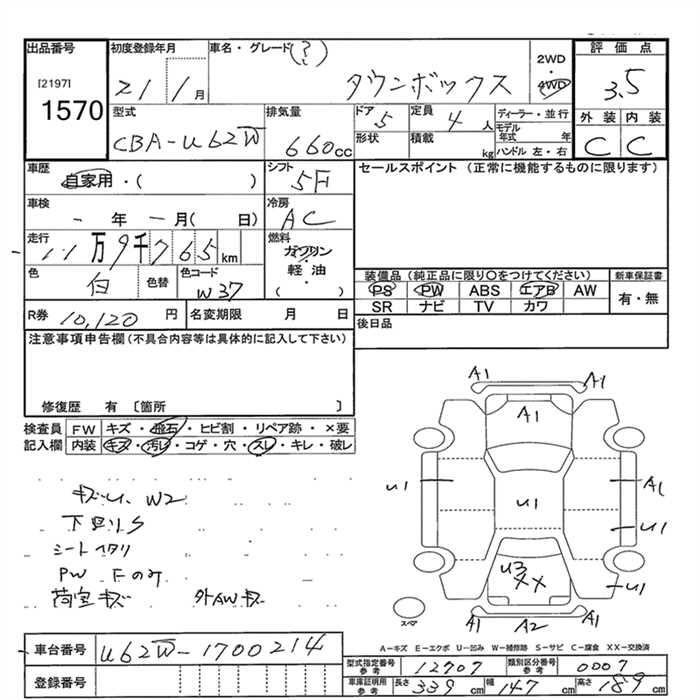 出品番号
[2197]
1570
初度登録年月
21 / 1 月
車名・グレード(?)
タウンボックス
2WD
・
4WD
評価点
3.5
外装 内装
C C
型式
CBA-U62W
排気量
660cc
ドア
5
形状
定員
4人
積載
kg
ディーラー・並行
モデル年式 年
ハンドル 左・右
車歴
自家用・( )
シフト
5F
セールスポイント (正常に機能するものに限ります)
車検
- 年 - 月( 日)
冷房
AC
走行
11万9千765km
燃料
ガソリン
軽油
( )
色
白
色替
色コード
W37
装備品 (純正品に限り○をつけてください)
PS PW ABS エアB AW
SR ナビ TV カワ
新車保証書
有・無
R券 10,120 円
名変期限 月 日
後日品
注意事項申告欄(不具合内容等は具体的に記入して下さい)
修復歴 有 〔箇所 〕
検査員記入欄
FW キズ・飛石・ヒビ割・リペア跡・×要
内装 キズ・汚レ・コゲ・穴・スレ・キレ・破レ
キズU、W2
下回りS
シートヘタリ
PW Fのみ
荷室キズ 外AWキズ
A1 A1
A1
U1 A1
U1 U1
U3
XX U1
A1 A2 A1
スペア
A-キズ E-エクボ U-凹み W-補修跡 S-サビ C-腐食 XX-交換済
車台番号 U62W-1700214
登録番号
型式指定番号 参考 12707
類別区分番号 参考 0007
車庫証明用 参考 長さ 339 cm 幅 147 cm 高さ 189 cm